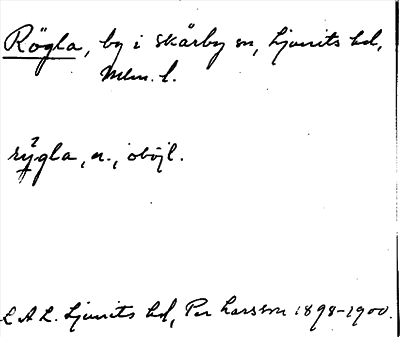 Rögla, by i Skårby sn, Ljunits hd,
Mlm. l.
rýgla, n., oböjl.
L A L. Ljunits hd, Per Larsson 1898-1900.